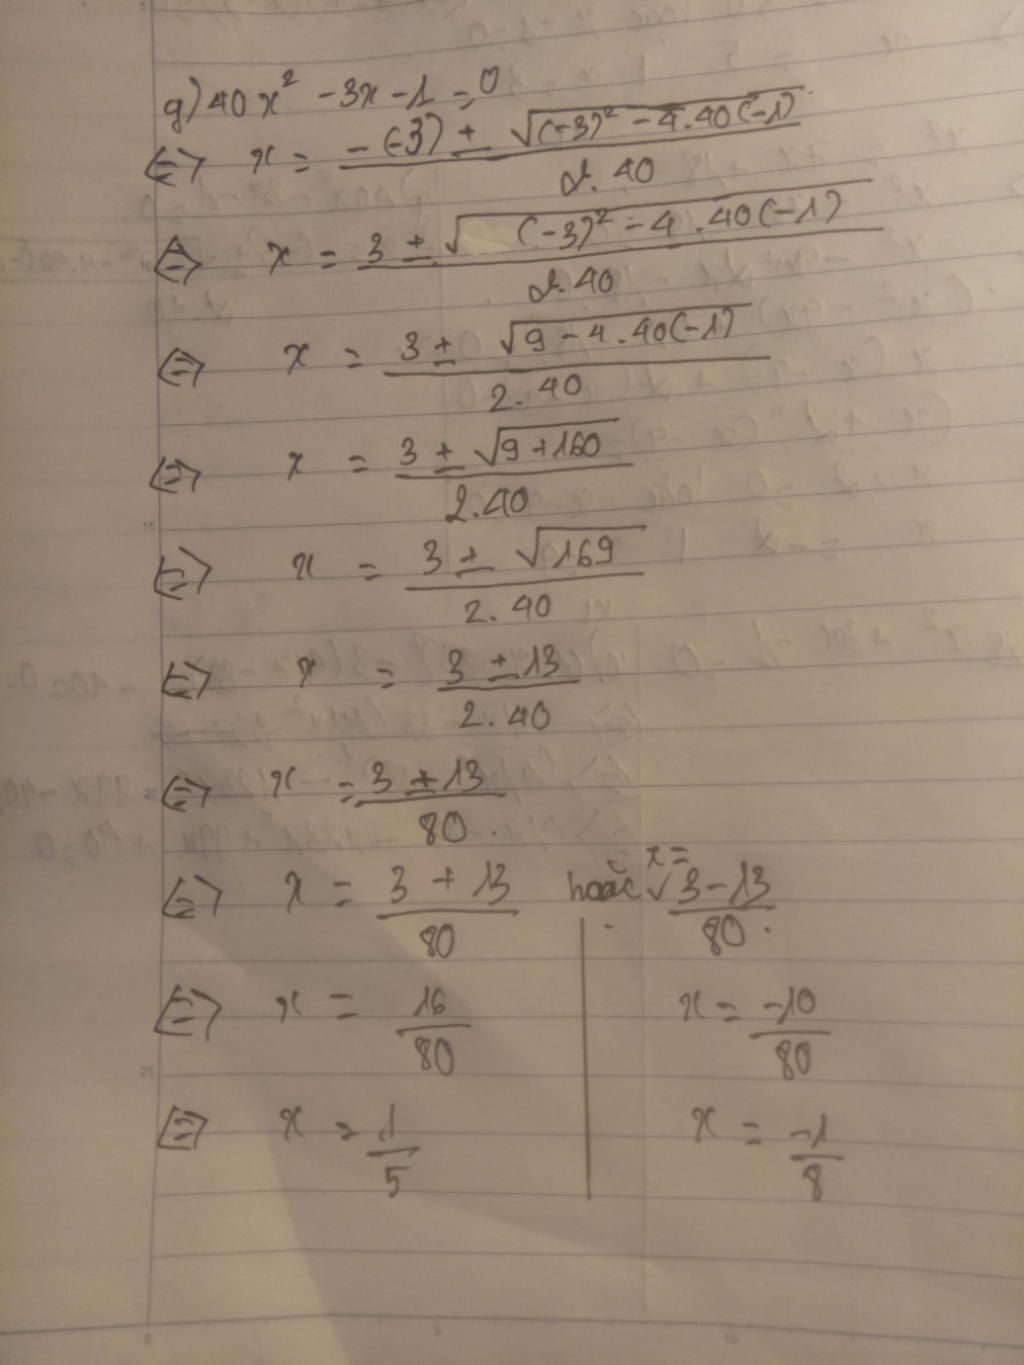 g) 40x² - 3x - 1 = 0
⇔ x = -(-3) ± √(-3)² - 4.40(-1) / 2.40
⇔ x = 3 ± √(-3)² - 4.40(-1) / 2.40
⇔ x = 3 ± √9 - 4.40(-1) / 2.40
⇔ x = 3 ± √9 + 160 / 2.40
⇔ x = 3 ± √169 / 2.40
⇔ x = 3 ± 13 / 2.40
⇔ x = 3 ± 13 / 80.
⇔ x = 3 + 13 / 80 hoặc x = 3 - 13 / 80.
⇔ x = 16 / 80 x = -10 / 80
⇔ x = 1 / 5 x = -1 / 8